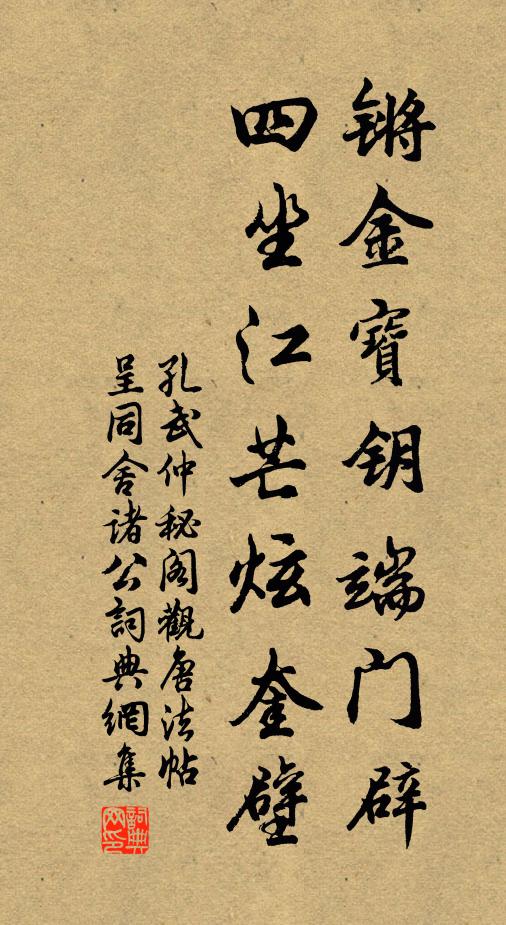 锵金寶钥端门辟
四坐江芒炫奎壁
孔武仲秘阁觀唐法帖
呈同舍诸公詞典網集
詞典網印